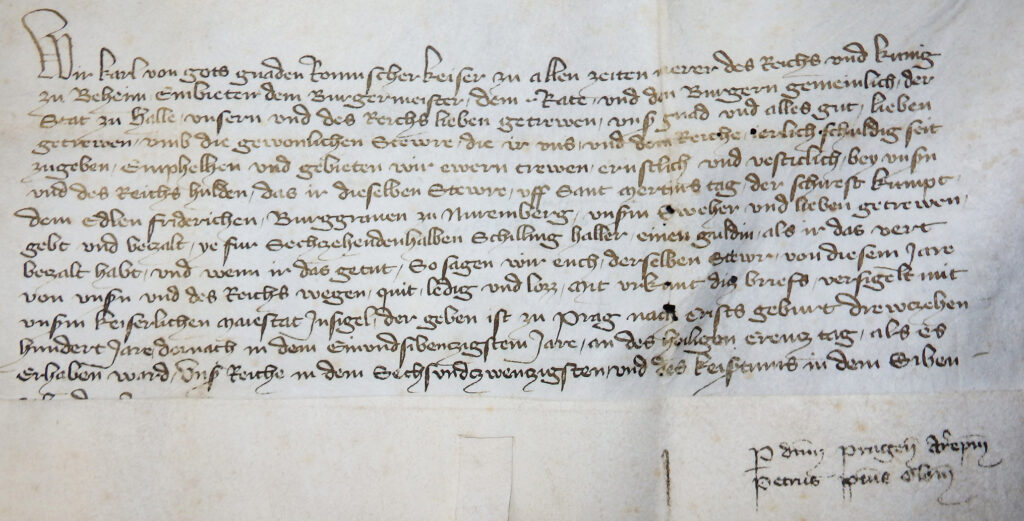 Wir Karl von gots gnaden Romischer keiser zu allen zeiten merer des Reichs vnd kunig
zu Beheim Embieten dem Burgermeister, dem Rate, vnd den Burgern gemeinlich, der
Stat zu Halle, vnsern vnd des Reichs lieben getrewen, vnsr gnad vnd alles gut, lieben
getrewen, vmb die gewonlichen Stewre, die ir vns, vnd dem Reiche, ierlich schuldig seit
zugeben, Emphelhen vnd gebieten wir ewern trewen, ernstlich vnd vesticlich, bey vnsrn
vnd des Reichs hulden, das ir dieselben Stewre, vff Sant Mertins tag, der schirest kumpt,
dem Edlen fridrichen, Burggrauen zu Nuremberg, vnsrm Sweher vnd lieben getrewen,
gebt vnd bezalt, ye fur Sechzehendenhalben Schilling haller, einen guldin, als ir das vert
bezalt habt, vnd wenn ir das getut, So sagen wir euch, derselben Stewr, von diesem Jare
von vnsrn vnd des Reichs wegen, quit, ledig vnd lozz, Mit vrkunt diz briefs, versigelt mit
vnsrm keiserlichen maiestat Insigel, der geben ist zu Prag nach crists geburt drewczehen
hundert Jare, dornach in dem Einvndsibenzigstem Jare, an des heiligen Creucz tag, als es
Erhaben ward, Vnsr Reiche in dem Sechsvndzwenzigsten, vnd des keisrtums in dem Siben
P dnm Pragen Arepm
Petrus